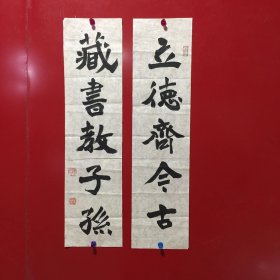 立德齊今古
藏書教子孫